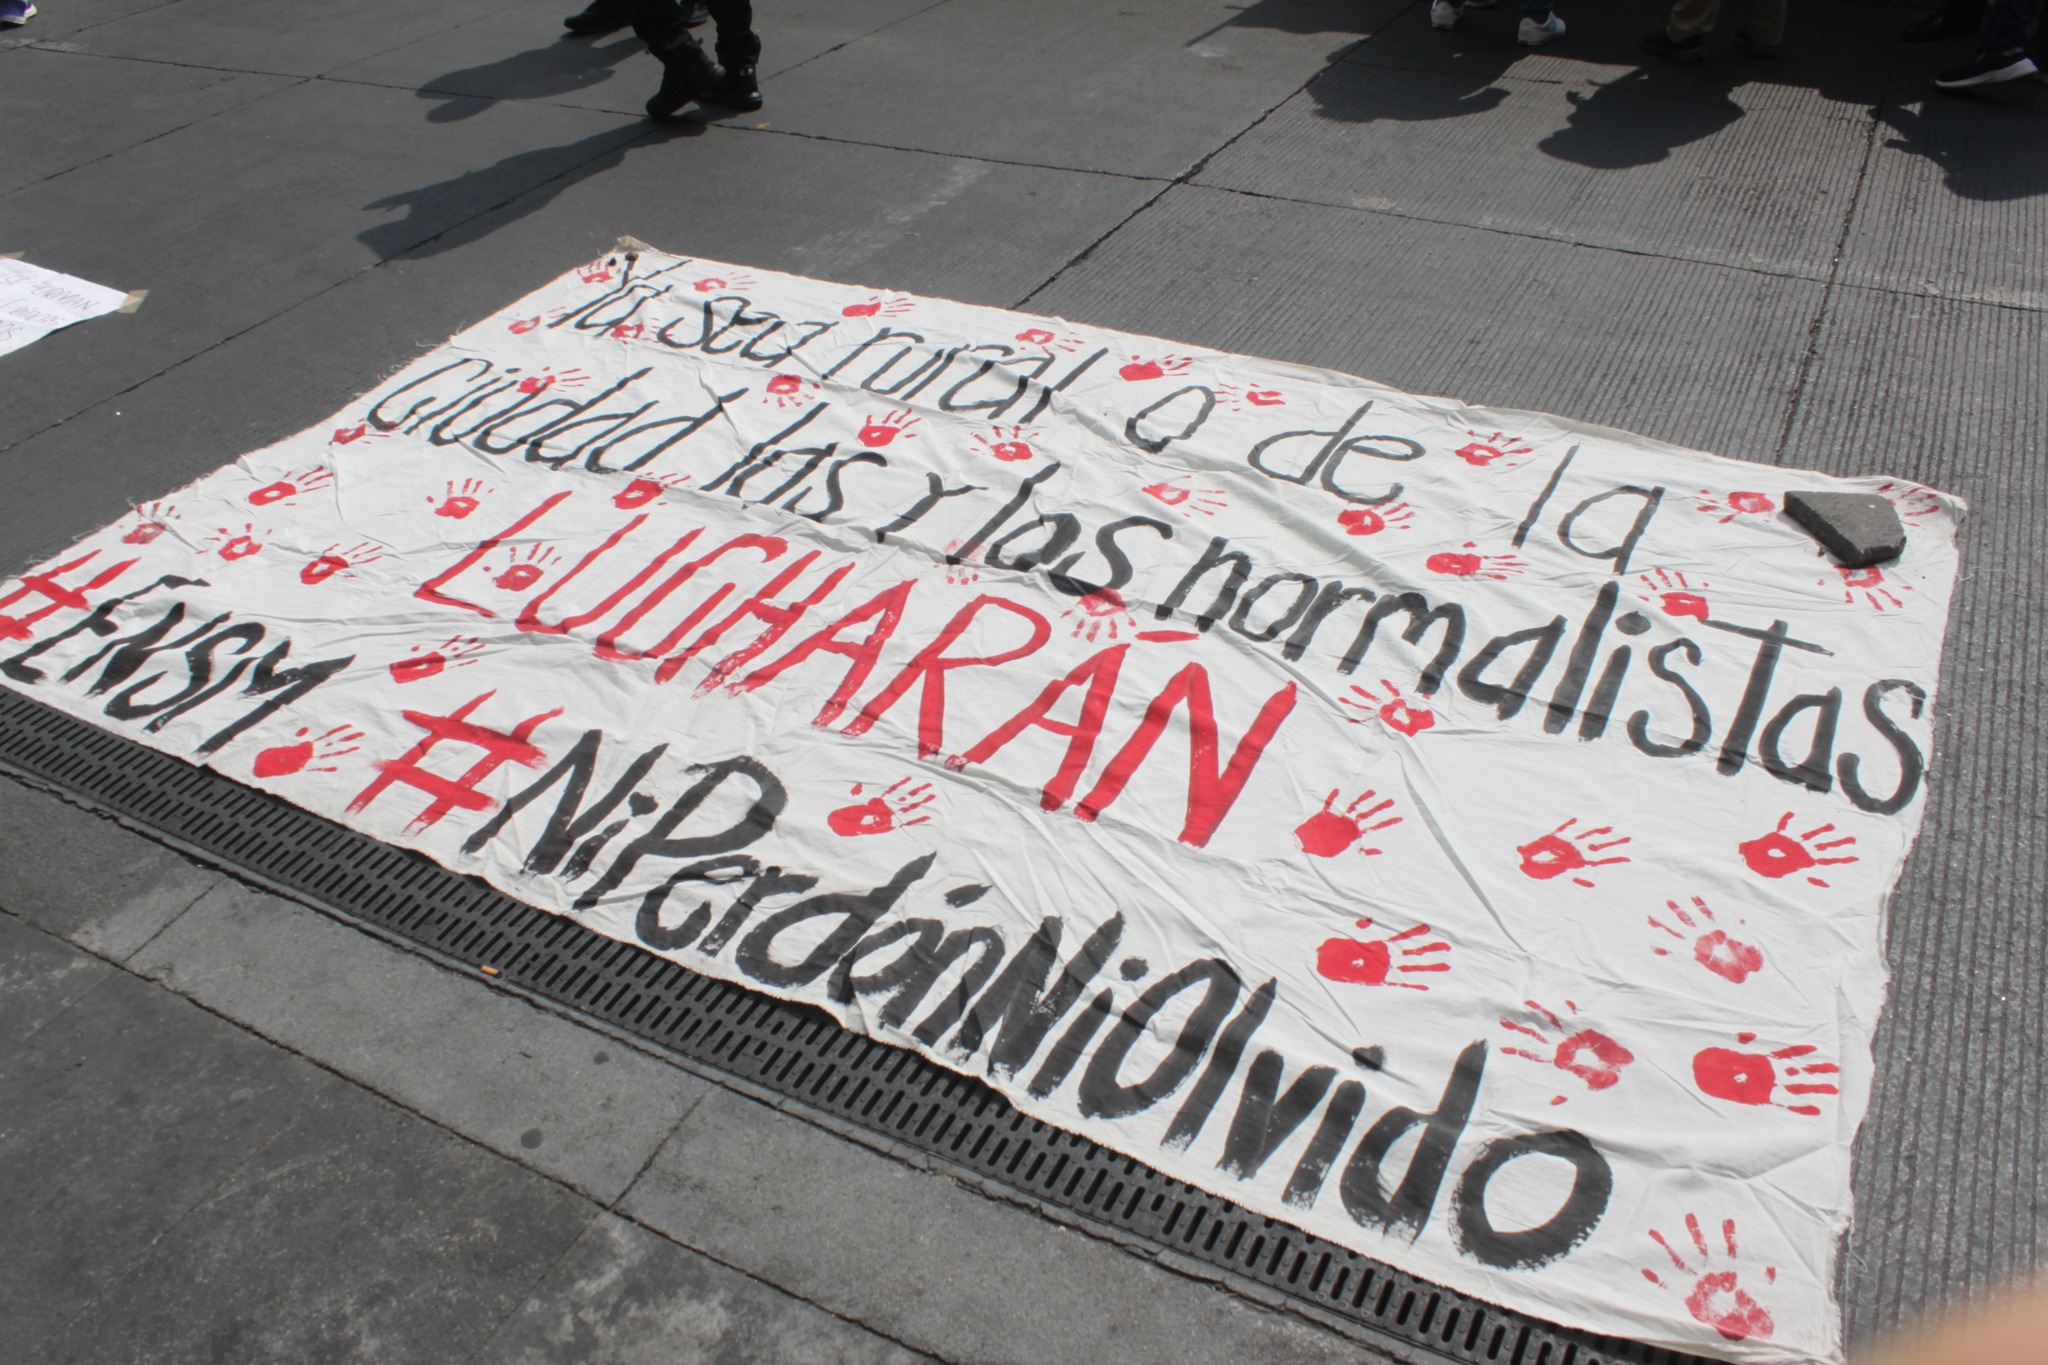 Ya sea rural o de la
ciudad las y los normalistas
LUCHARÁN
#ENSM
#NiPerdónNiOlvido